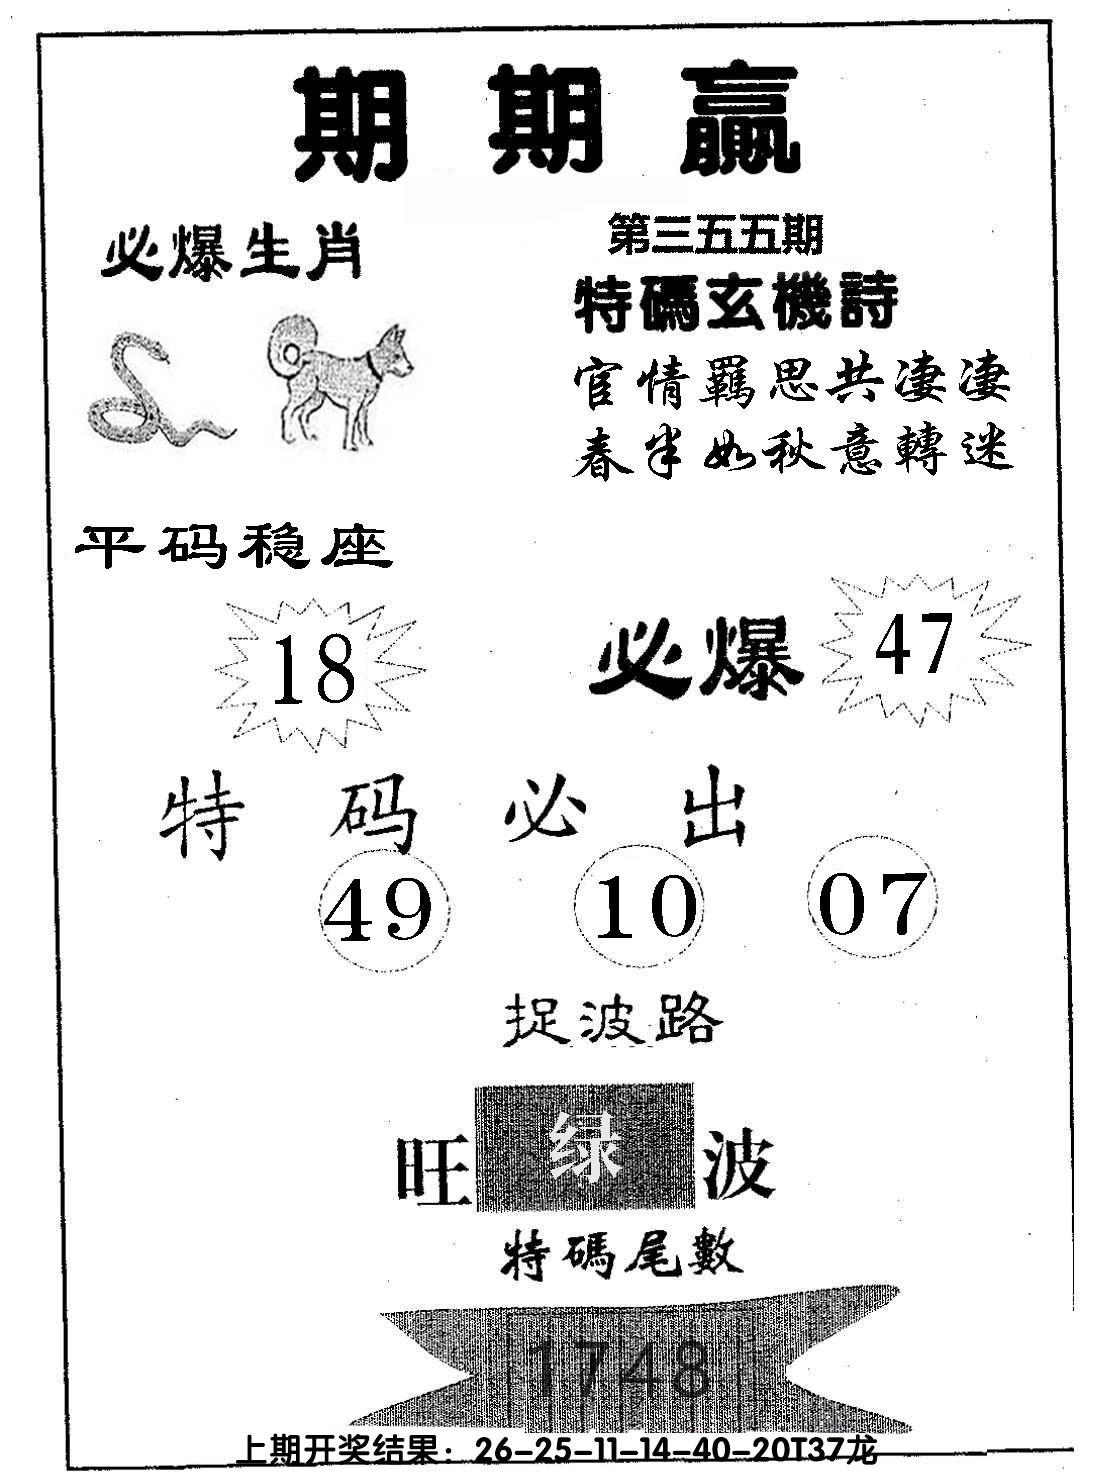 期期赢
必爆生肖
第三五五期
特碼玄機詩
宦情羈思共凄凄
春半如秋意轉迷
平码稳座
18
必爆
47
特码必出
49 10 07
捉波路
旺绿波
特碼尾數
1748
上期开奖结果：26-25-11-14-40-20T37龙